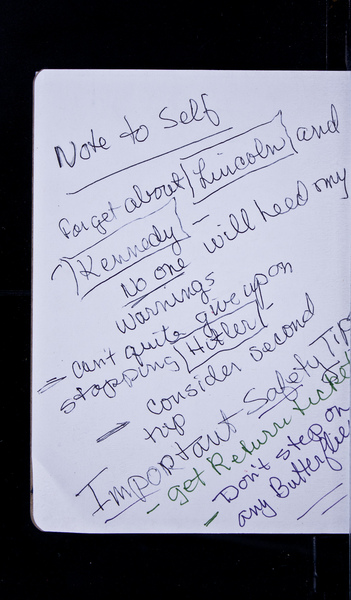 Note to Self
Forget about {Lincoln} and
{Kennedy} -
No one will heed my
warnings
- Can't quite give up on
stopping {Hitler} -
- Consider second
trip
Important Safety Tip
- get Return Ticket
- Don't step on
any Butterflies